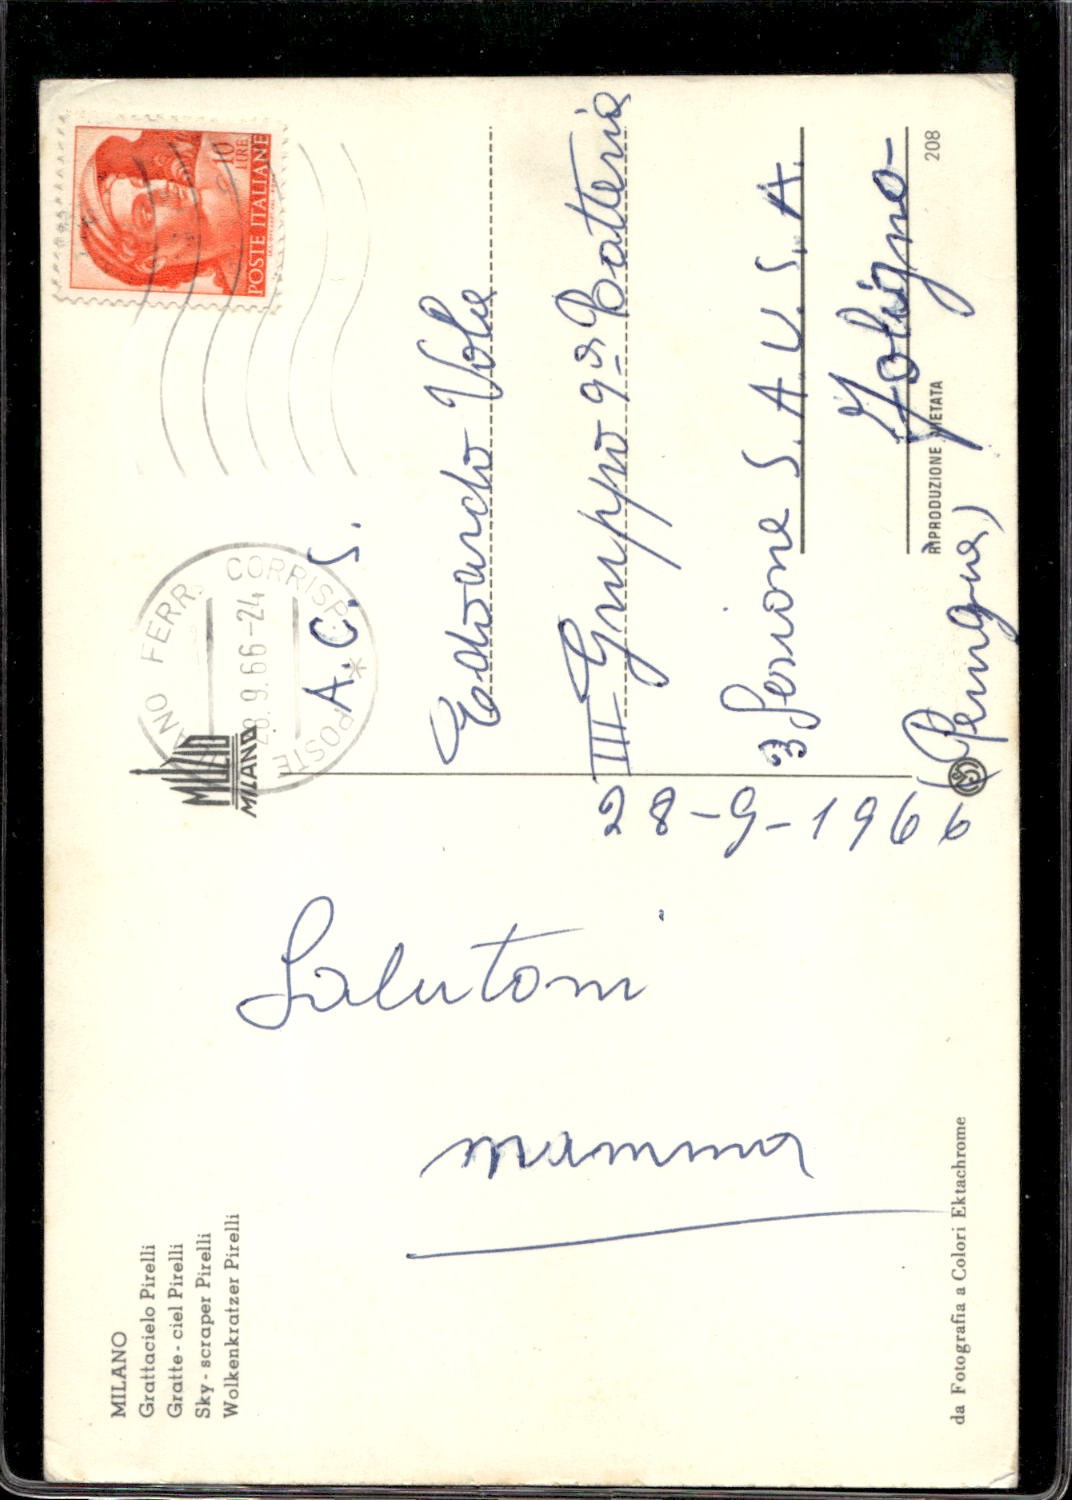 MILANO
Grattacielo Pirelli
Gratte - ciel Pirelli
Sky - scraper Pirelli
Wolkenkratzer Pirelli
MILANO
28-9-1966
Salutoni
mamma
da Fotografia a Colori Ektachrome
10
LIRE
POSTE ITALIANE
MILANO FERR. CORRISP. POSTE
28.9.66-24
A.C.S.
Edoardo
III Gruppo 9ª Batteria
3 Sezione S.A.U.S.A.
Foligno-
(Perugia)
RIPRODUZIONE VIETATA
208